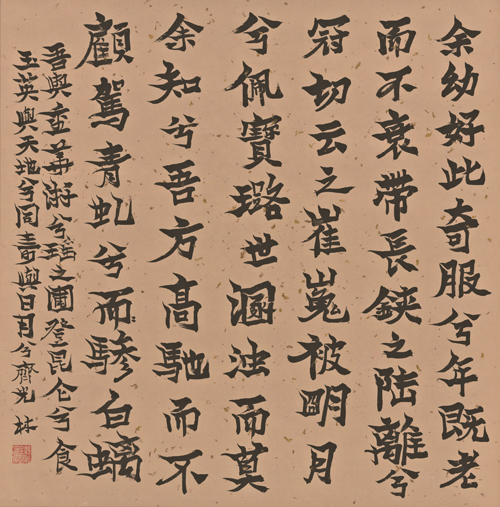 余幼好此奇服兮年既老
而不衰帶長鋏之陸離兮
冠切云之崔嵬被明月
兮佩寶璐世溷浊而莫
余知兮吾方高馳而不
顧駕青虬兮而驂白螭
吾與重華游兮瑤之圃登昆仑兮食
玉英與天地兮同壽與日月兮齊光 林